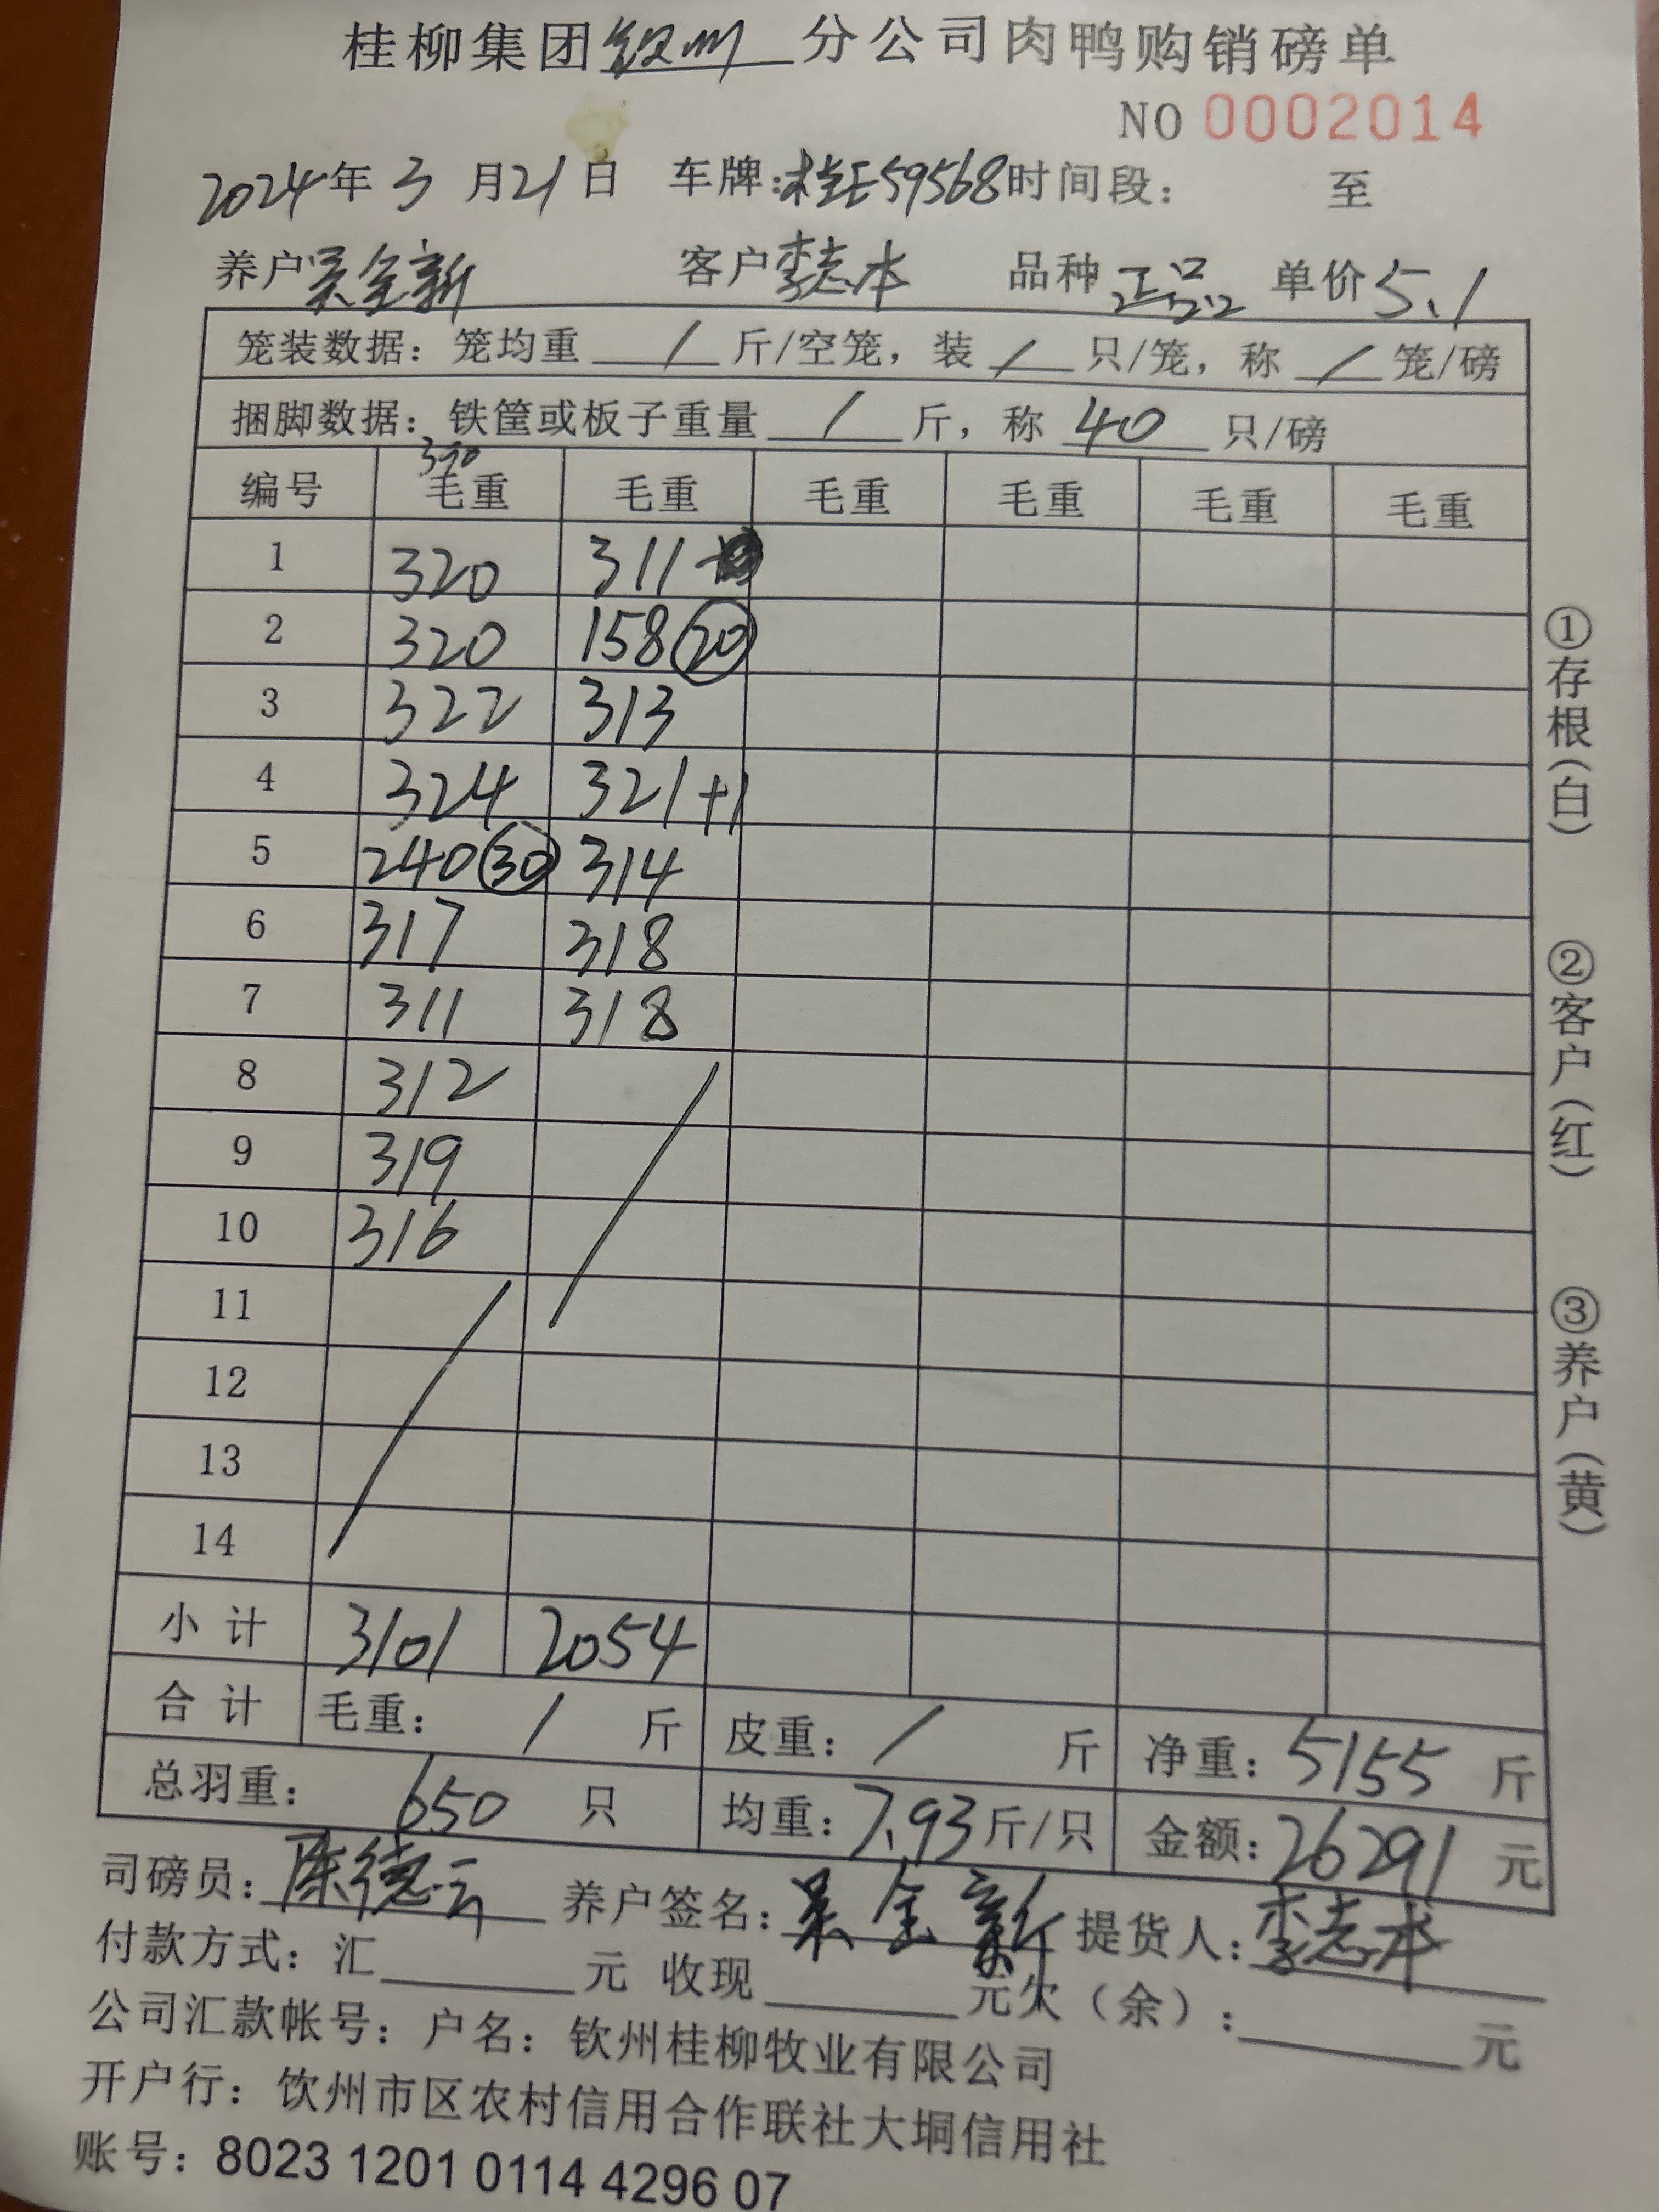 桂柳集团钦州分公司肉鸭购销磅单
NO 0002014
2024年3月21日 车牌:桂E59568时间段: 至
养户吴全新 客户李志本 品种正品 单价5.1
笼装数据: 笼均重 / 斤/空笼, 装 / 只/笼, 称 / 笼/磅
捆脚数据: 铁筐或板子重量 / 斤, 称 40 只/磅
编号 毛重 毛重 毛重 毛重 毛重 毛重
1 320 311
2 320 158 20
3 322 313
4 324 321+1
5 240 30 314
6 317 318
7 311 318
8 312
9 319
10 316
11
12
13
14
小计 3101 2054
合计 毛重: / 斤 皮重: / 斤 净重: 5155 斤
总羽重: 650 只 均重: 7.93斤/只 金额: 26291 元
司磅员: 陈德云 养户签名: 吴全新 提货人: 李志本
付款方式: 汇 元 收现 元欠(余): 元
公司汇款帐号: 户名: 钦州桂柳牧业有限公司
开户行: 饮州市区农村信用合作联社大垌信用社
账号: 8023 1201 0114 4296 07
①存根(白)
②客户(红)
③养户(黄)